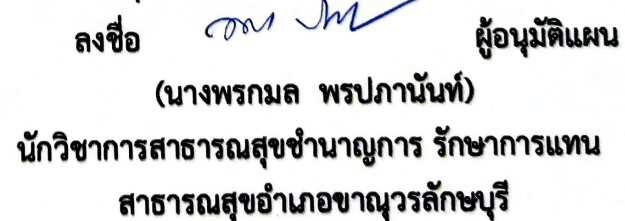 ลงชื่อ ผู้อนุมัติแผน
(นางพรกมล พรปภานันท์)
นักวิชาการสาธารณสุขชำนาญการ รักษาการแทน
สาธารณสุขอำเภอขาณุวรลักษบุรี